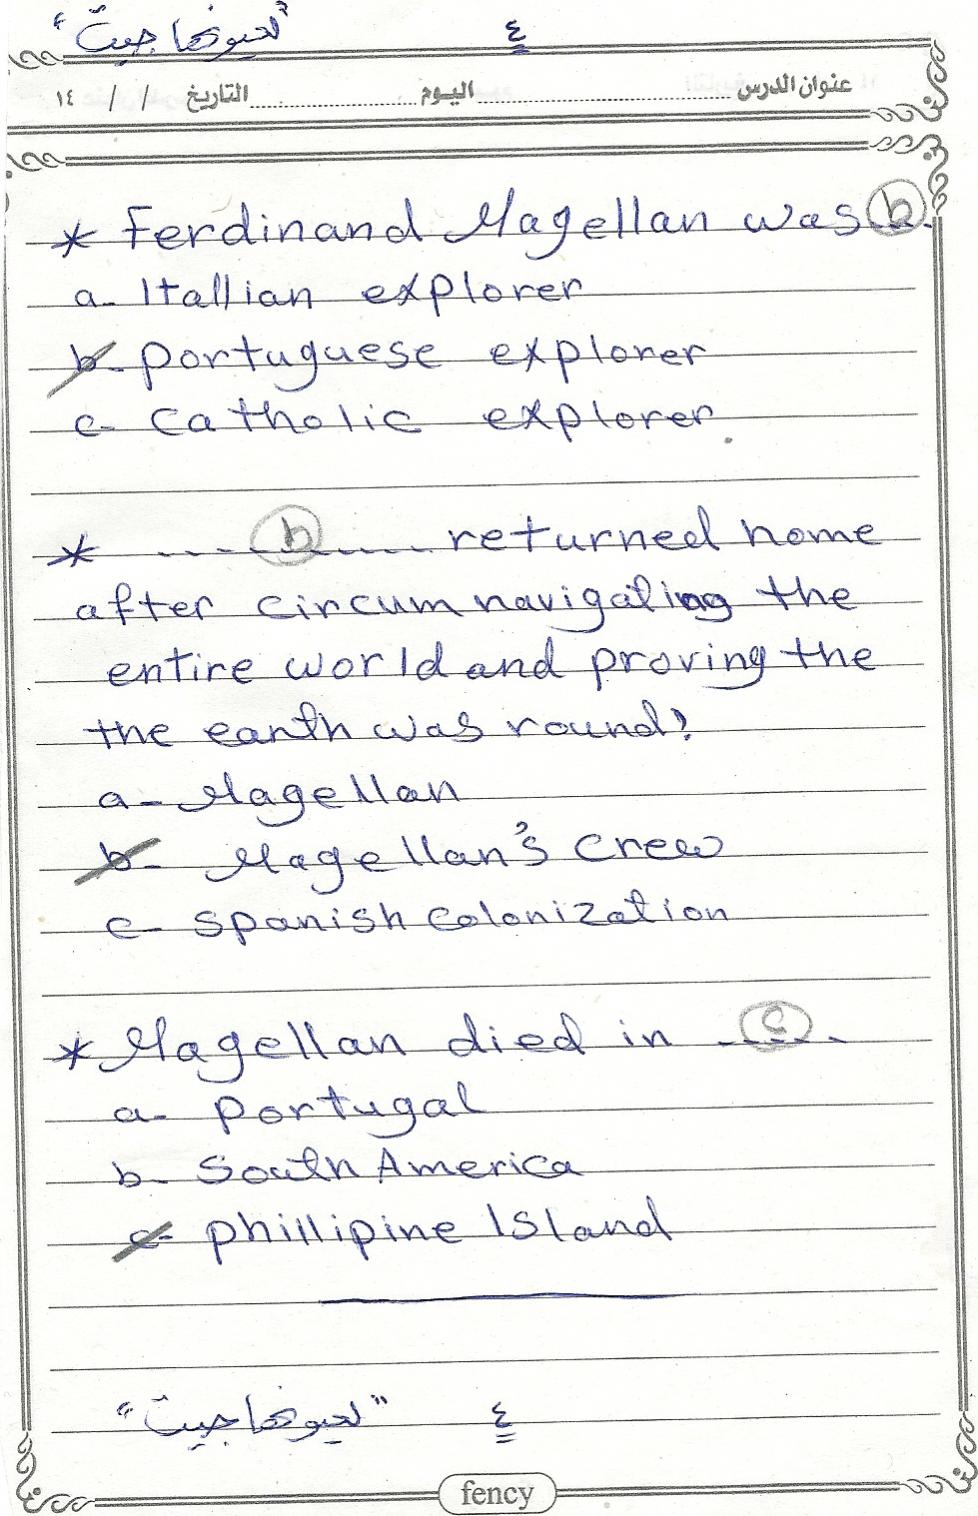 ٤
عنوان الدرس اليوم التاريخ / / ١٤
* Ferdinand Magellan was b
a- Itallian explorer
b- portuguese explorer
c- catholic explorer.
* ....b..... returned home
after circumnavigating the
entire world and proving the
the earth was round?
a- Magellan
b- Magellan's crew
c- spanish colonization
* Magellan died in c
a- portugal
b- South America
c- phillipine Island
٤
fency